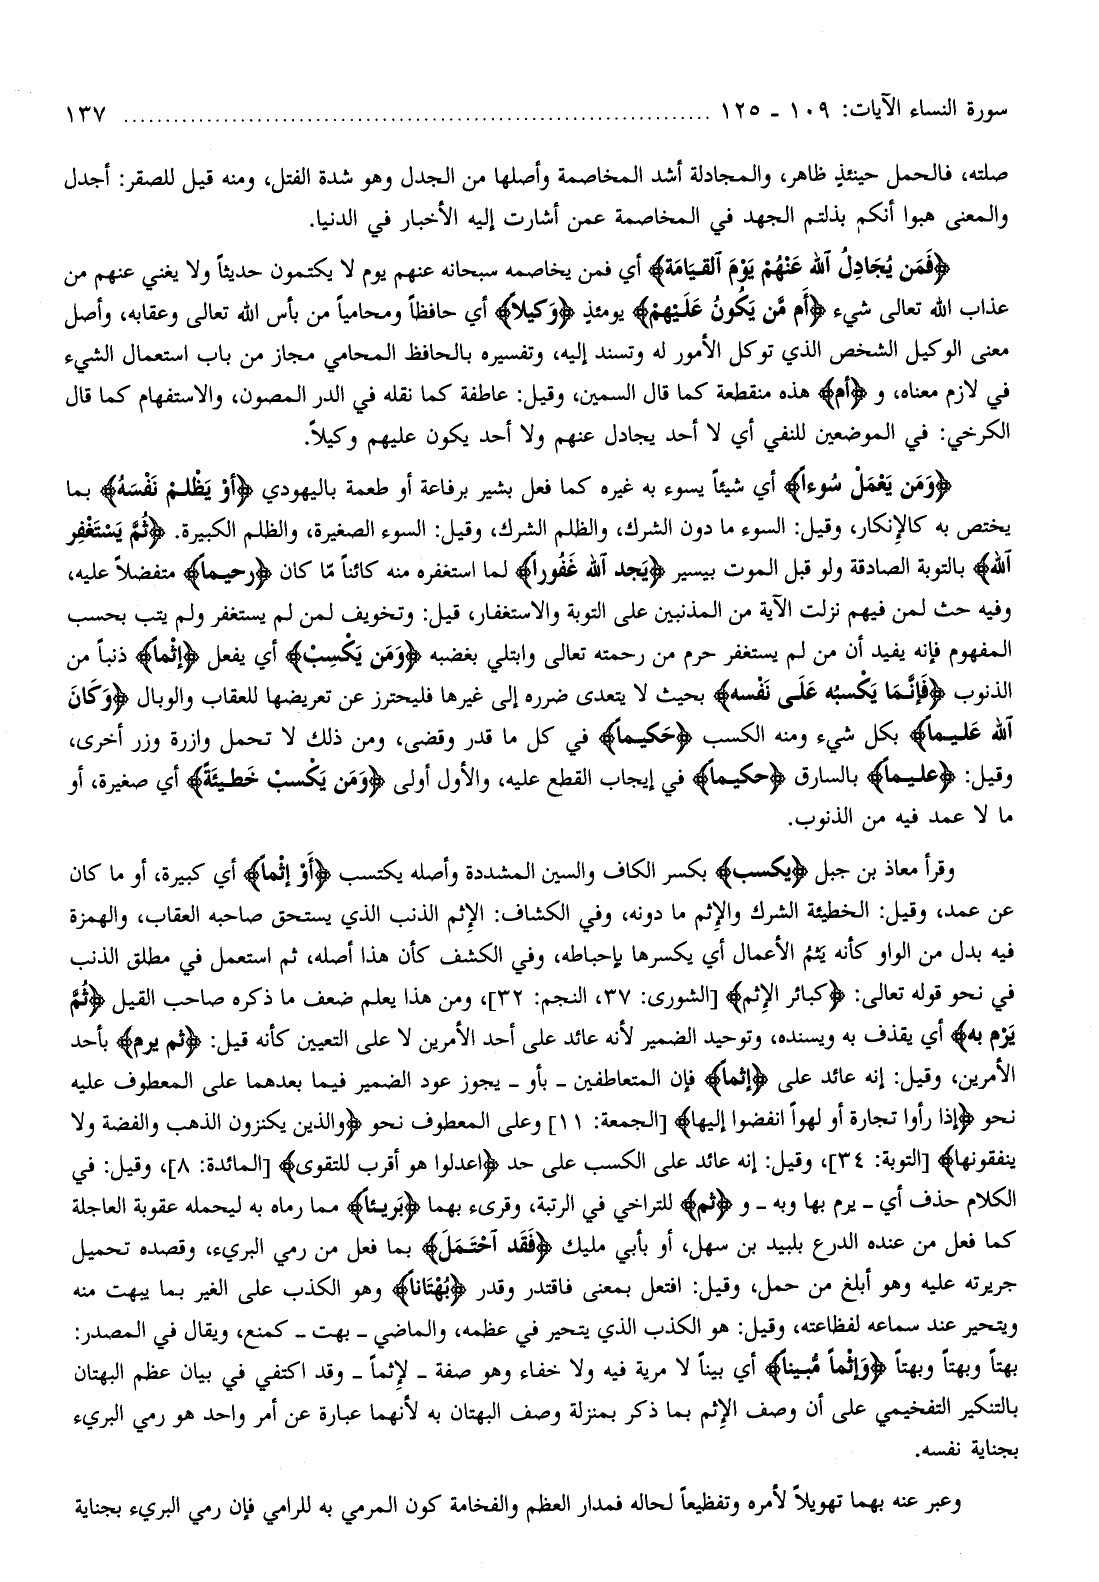 سورة النساء الآيات: ١٠٩ ـ ١٢٥ ........................................................................ ١٣٧
صلته، فالحمل حينئذٍ ظاهر، والمجادلة أشد المخاصمة وأصلها من الجدل وهو شدة الفتل، ومنه قيل للصقر: أجدل
والمعنى هبوا أنكم بذلتم الجهد في المخاصمة عمن أشارت إليه الأخبار في الدنيا.
﴿فَمَن يُجَادِلُ ٱلله عَنْهُمْ يَوْمَ ٱلقـيَامَة﴾ أي فمن يخاصمه سبحانه عنهم يوم لا يكتمون حديثاً ولا يغني عنهم من
عذاب الله تعالى شيء ﴿أَم مَّن يَكُونُ عَلَـيْهِمْ﴾ يومئذٍ ﴿وَكيلاً﴾ أي حافظاً ومحامياً من بأس الله تعالى وعقابه، وأصل
معنى الوكيل الشخص الذي توكل الأمور له وتسند إليه، وتفسيره بالحافظ المحامي مجاز من باب استعمال الشيء
في لازم معناه، و ﴿أم﴾ هذه منقطعة كما قال السمين، وقيل: عاطفة كما نقله في الدر المصون، والاستفهام كما قال
الكرخي: في الموضعين للنفي أي لا أحد يجادل عنهم ولا أحد يكون عليهم وكيلاً.
﴿وَمَن يَعْمَلْ سُوءاً﴾ أي شيئاً يسوء به غيره كما فعل بشير برفاعة أو طعمة باليهودي ﴿أَوْ يَظْلـمْ نَفْسَهُ﴾ بما
يختص به كالإنكار، وقيل: السوء ما دون الشرك، والظلم الشرك، وقيل: السوء الصغيرة، والظلم الكبيرة. ﴿ثُمَّ يَسْتَغْفِر
ٱلله﴾ بالتوبة الصادقة ولو قبل الموت بيسير ﴿يَجد ٱلله غَفُوراً﴾ لما استغفره منه كائناً مّا كان ﴿رحيـماً﴾ متفضلاً عليه،
وفيه حث لمن فيهم نزلت الآية من المذنبين على التوبة والاستغفار، قيل: وتخويف لمن لم يستغفر ولم يتب بحسب
المفهوم فإنه يفيد أن من لم يستغفر حرم من رحمته تعالى وابتلي بغضبه ﴿وَمَن يَكْسِبْ﴾ أي يفعل ﴿إثْماً﴾ ذنباً من
الذنوب ﴿فَإنَّـمَا يَكْسبُه عَلَـى نَفْسه﴾ بحيث لا يتعدى ضرره إلى غيرها فليحترز عن تعريضها للعقاب والوبال ﴿وَكَانَ
ٱلله عَلـيـماً﴾ بكل شيء ومنه الكسب ﴿حَكيـماً﴾ في كل ما قدر وقضى، ومن ذلك لا تحمل وازرة وزر أخرى،
وقيل: ﴿عليـماً﴾ بالسارق ﴿حكيـماً﴾ في إيجاب القطع عليه، والأول أولى ﴿وَمَن يَكْسبْ خَطيـئَةً﴾ أي صغيرة، أو
ما لا عمد فيه من الذنوب.
وقرأ معاذ بن جبل ﴿يكسب﴾ بكسر الكاف والسين المشددة وأصله يكتسب ﴿أَوْ إثْماً﴾ أي كبيرة، أو ما كان
عن عمد، وقيل: الخطيئة الشرك والإثم ما دونه، وفي الكشاف: الإثم الذنب الذي يستحق صاحبه العقاب، والهمزة
فيه بدل من الواو كأنه يَثمُ الأعمال أي يكسرها بإحباطه، وفي الكشف كأن هذا أصله، ثم استعمل في مطلق الذنب
في نحو قوله تعالى: ﴿كبائر الإثم﴾ [الشورى: ٣٧، النجم: ٣٢]، ومن هذا يعلم ضعف ما ذكره صاحب القيل ﴿ثُمَّ
يَرْم به﴾ أي يقذف به ويسنده، وتوحيد الضمير لأنه عائد على أحد الأمرين لا على التعيين كأنه قيل: ﴿ثم يرم﴾ بأحد
الأمرين، وقيل: إنه عائد على ﴿إثماً﴾ فإن المتعاطفين ـ بأو ـ يجوز عود الضمير فيما بعدهما على المعطوف عليه
نحو ﴿إذا رأوا تجارة أو لهواً انفضوا إليها﴾ [الجمعة: ١١] وعلى المعطوف نحو ﴿والذين يكنزون الذهب والفضة ولا
ينفقونها﴾ [التوبة: ٣٤]، وقيل: إنه عائد على الكسب على حد ﴿اعدلوا هو أقرب للتقوى﴾ [المائدة: ٨]، وقيل: في
الكلام حذف أي ـ يرم بها وبه ـ و ﴿ثم﴾ للتراخي في الرتبة، وقرىء بهما ﴿بَريـئاً﴾ مما رماه به ليحمله عقوبة العاجلة
كما فعل من عنده الدرع بلبيد بن سهل، أو بأبي مليك ﴿فَقَد ٱحْتَمَلَ﴾ بما فعل من رمي البريء، وقصده تحميل
جريرته عليه وهو أبلغ من حمل، وقيل: افتعل بمعنى فاقتدر وقدر ﴿بُهْتَاناً﴾ وهو الكذب على الغير بما يبهت منه
ويتحير عند سماعه لفظاعته، وقيل: هو الكذب الذي يتحير في عظمه، والماضي ـ بهت ـ كمنع، ويقال في المصدر:
بهتاً وبهتاً وبهتاً ﴿وَإثْماً مُّبـيناً﴾ أي بيناً لا مرية فيه ولا خفاء وهو صفة ـ لإثماً ـ وقد اكتفي في بيان عظم البهتان
بالتنكير التفخيمي على أن وصف الإثم بما ذكر بمنزلة وصف البهتان به لأنهما عبارة عن أمر واحد هو رمي البريء
بجناية نفسه.
وعبر عنه بهما تهويلاً لأمره وتفظيعاً لحاله فمدار العظم والفخامة كون المرمي به للرامي فإن رمي البريء بجناية